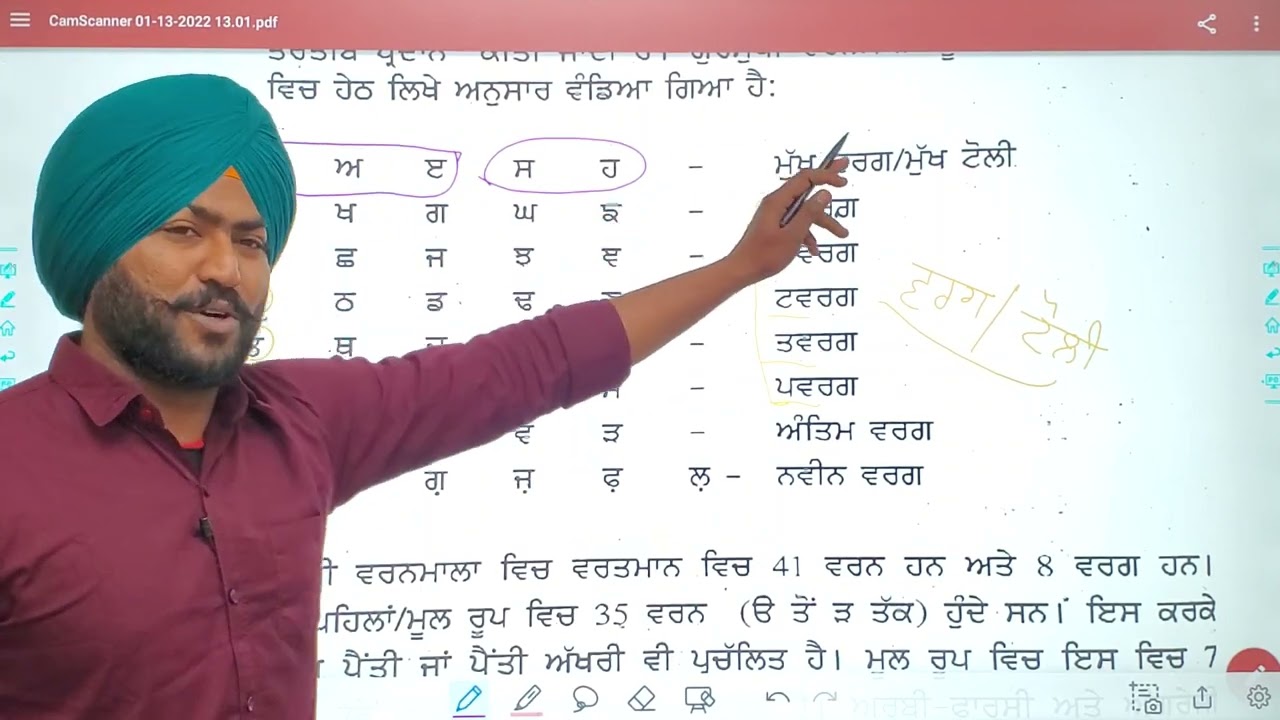 CamScanner 01-13-2022 13.01.pdf
ਵਿਚ ਹੇਠ ਲਿਖੇ ਅਨੁਸਾਰ ਵੰਡਿਆ ਗਿਆ ਹੈ:
ਅ ੲ ਸ ਹ – ਮੁੱਖ ਵਰਗ/ਮੁੱਖ ਟੋਲੀ
ਖ ਗ ਘ ਙ –
ਛ ਜ ਝ ਞ –
ਠ ਡ ਢ – ਟਵਰਗ
ਥ – ਤਵਰਗ
– ਪਵਰਗ
ਵ ੜ – ਅੰਤਿਮ ਵਰਗ
ਗ਼ ਜ਼ ਫ਼ ਲ਼ – ਨਵੀਨ ਵਰਗ
ਵਰਗ/ਟੋਲੀ
ਵਰਨਮਾਲਾ ਵਿਚ ਵਰਤਮਾਨ ਵਿਚ 41 ਵਰਨ ਹਨ ਅਤੇ 8 ਵਰਗ ਹਨ।
ਪਹਿਲਾਂ/ਮੂਲ ਰੂਪ ਵਿਚ 35 ਵਰਨ (ੳ ਤੋਂ ੜ ਤੱਕ) ਹੁੰਦੇ ਸਨ। ਇਸ ਕਰਕੇ
ਪੈਂਤੀ ਜਾਂ ਪੈਂਤੀ ਅੱਖਰੀ ਵੀ ਪ੍ਰਚੱਲਿਤ ਹੈ। ਮੂਲ ਰੂਪ ਵਿਚ ਇਸ ਵਿਚ 7